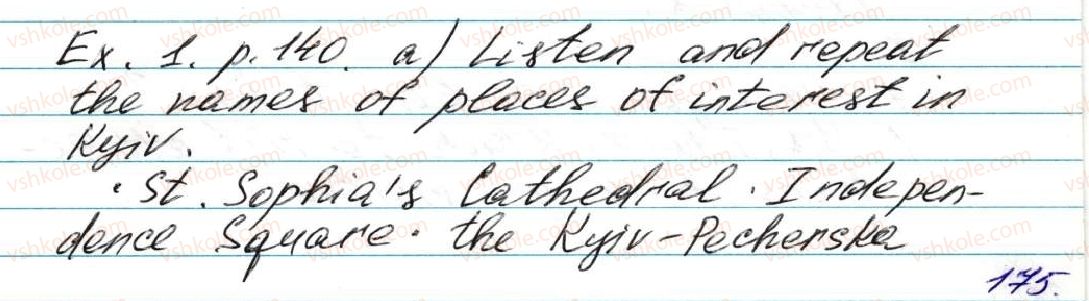 Ex. 1. p. 140. a) Listen and repeat
the names of places of interest in
Kyiv.
· St. Sophia's Cathedral · Indepen-
dence Square · the Kyiv-Pecherska
175.